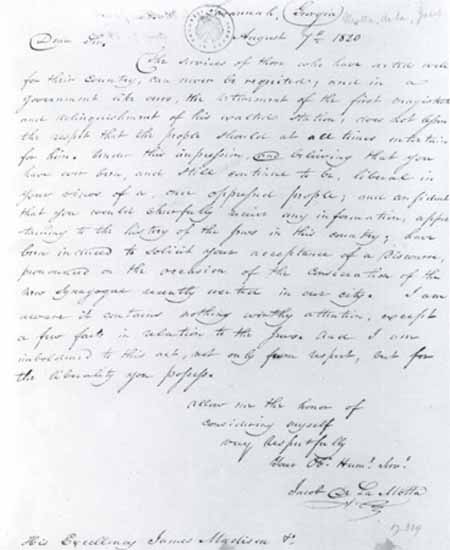 Savannah, Georgia
Dear Sir, August 7th 1820
The services of those who have acted well
for their Country, can never be requited; and in a
Government like ours, the retirement of the first magistrate
and relinquishment of his exalted Station, does not lessen
the respect that the people should at all times entertain
for him. Under this impression, and believing that you
have ever been, and still continue to be, liberal in
your views of a once oppressed people; and confident
that you would cheerfully receive any information, apper-
taining to the history of the Jews in this country; have
been induced to solicit your acceptance of a Discourse,
pronounced on the occasion of the Consecration of the
new Synagogue recently erected in our city. I am
aware it contains nothing worthy attention, except
a few facts in relation to the Jews. And I am
imboldened to this act, not only from respect, but for
the liberality you possess.
Allow me the honor of
considering myself
very Respectfully
Your Ob. Humb. Serv.
Jacob De La Motta
His Excellency James Madison